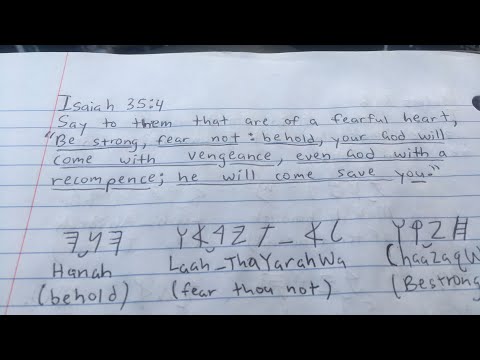 Isaiah 35:4
Say to them that are of a fearful heart,
"Be strong, fear not: behold, your God will
come with vengeance, even God with a
recompence; he will come save you."
𐤇𐤆𐤒𐤅 𐤋𐤀_𐤕𐤉𐤓𐤀𐤅 𐤄𐤍𐤄
Hanah Laah_ThaYarahWa ChaaZaqW
(behold) (fear thou not) (Bestrong